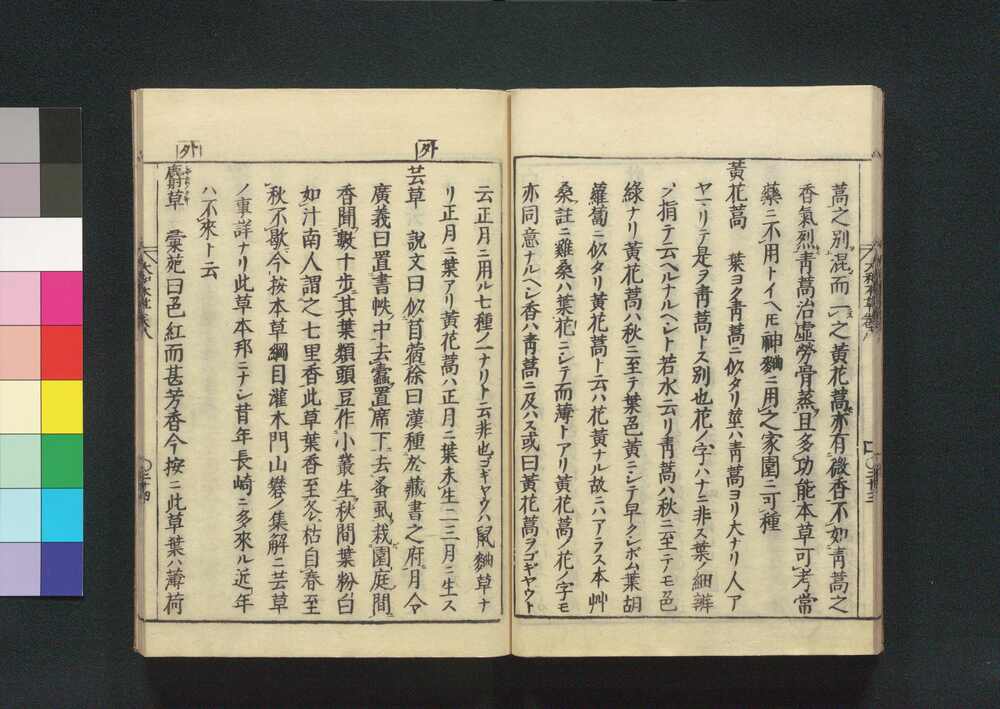 蒿之別混而一之黄花蒿亦有微香不如青蒿之
香氣烈青蒿治虚勞骨蒸且多功能本草可考常
藥ニ不用トイヘ𪜈神麯ニ用之家園ニ可種
黄花蒿 葉ヨク青蒿ニ似タリ莖ハ青蒿ヨリ大ナリ人ア
ヤマリテ是ヲ青蒿トス別也花ノ字ハナニ非ス葉ノ細辨
ヲ指テ云ヘルナルヘシト若水云リ青蒿ハ秋ニ至テモ色
綠ナリ黄花蒿ハ秋ニ至テ葉色黄ニシテ早クシボム葉胡
蘿蔔ニ似タリ黄花蒿ト云ハ花黄ナル故ニハアラス本艸
桑註ニ雞桑ハ葉花ニシテ而薄トアリ黄花蒿ノ花ノ字モ
亦同意ナルヘシ香ハ青蒿ニ及ハス或曰黄花蒿ヲゴギヤウト
云正月ニ用ル七種ノ一ナリト云非也ゴギヤウハ鼠麴草ナ
リ正月ニ葉アリ黄花蒿ハ正月ニ葉未生二三月ニ生ス
外
芸草 説文曰似苜蓿徐曰漢種於藏書之府月令
廣義曰置書帙中去蠹置席下去蚤虱栽園庭間
香聞數十歩其葉類頭豆作小叢生秋間葉粉白
如汁南人謂之七里香此草葉香至冬枯自春至
秋不歇今按本草綱目灌木門山礬ノ集解ニ芸草
ノ事詳ナリ此草本邦ニナシ昔年長崎ニ多來ル近年
ハ不來ト云
外
麝草 彙苑曰色紅而甚芳香今按ニ此草葉ハ薄荷